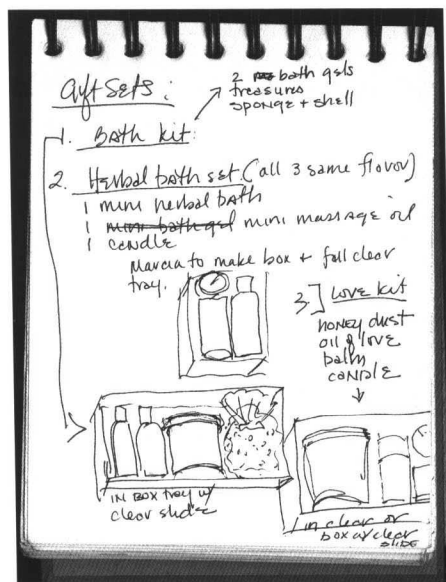 Gift Sets:
2 bath gels
treasures
sponge + shell
1. Bath kit:
2. Herbal bath set (all 3 same flavor)
1 mini herbal bath
1 mini bath gel mini massage oil
1 candle
Marcia to make box + full clear
tray.
3] Love kit
honey dust
oil of love
balm
candle
in box tray w/
clear slide
in clear or
box w/ clear
slide